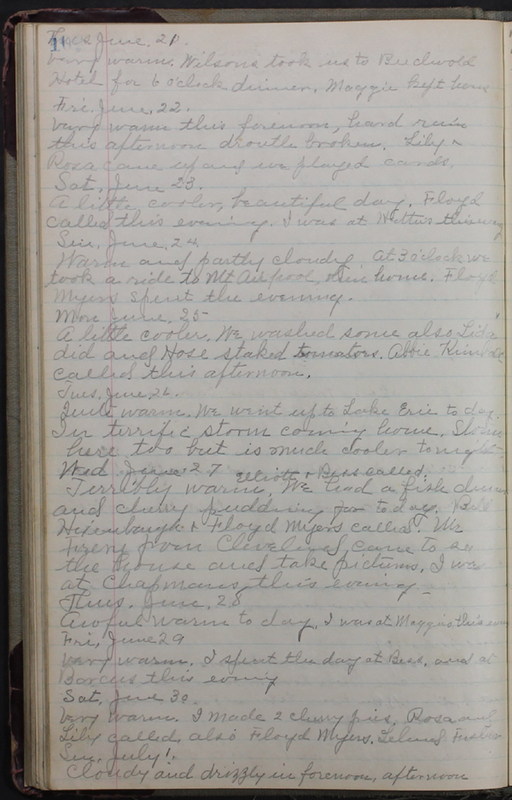 Thurs June. 21.
very warm. Wilsons took us to Beechwold
Hotel for 6 o'clock dinner. Maggie kept house
Fri. June. 22.
very warm this forenoon, hard rain
this afternoon drouth broken. Lily &
Rosa came up and we played cards.
Sat. June 23.
A little cooler, beautiful day. Floyd
called this evening. I was at this evng
Sun. June. 24.
Warm and partly cloudy. At 3 o'clock we
took a ride to Mt Airy pool, then home. Floyd
Myers spent the evening.
Mon June. 25-
A little cooler. We washed some also Lide
did and Hose staked tomatoes. Abbie
called this afternoon.
Tues. June 26.
Quite warm. We went up to Lake Erie to day.
In terrific storm coming home. Storm
here too but is much cooler tonight
Wed June 27 Elliott & Bess called.
Terribly warm. We had a fish dinner
and cherry pudding for to day. Bill
Hixenbaugh & Floyd Myers called. Mr
from Cleveland came to see
the house and take pictures. I was
at Chapmans this evening -
Thurs. June. 28
Awful warm to day. I was at Maggies this evng
Fri, June 29
very warm. I spent the day at Bess. and at
Barcus this evening
Sat. June 30.
Very warm. I made 2 cherry pies. Rosa and
Lily called, also Floyd Myers.
Sun. July 1.
Cloudy and drizzly in forenoon, afternoon